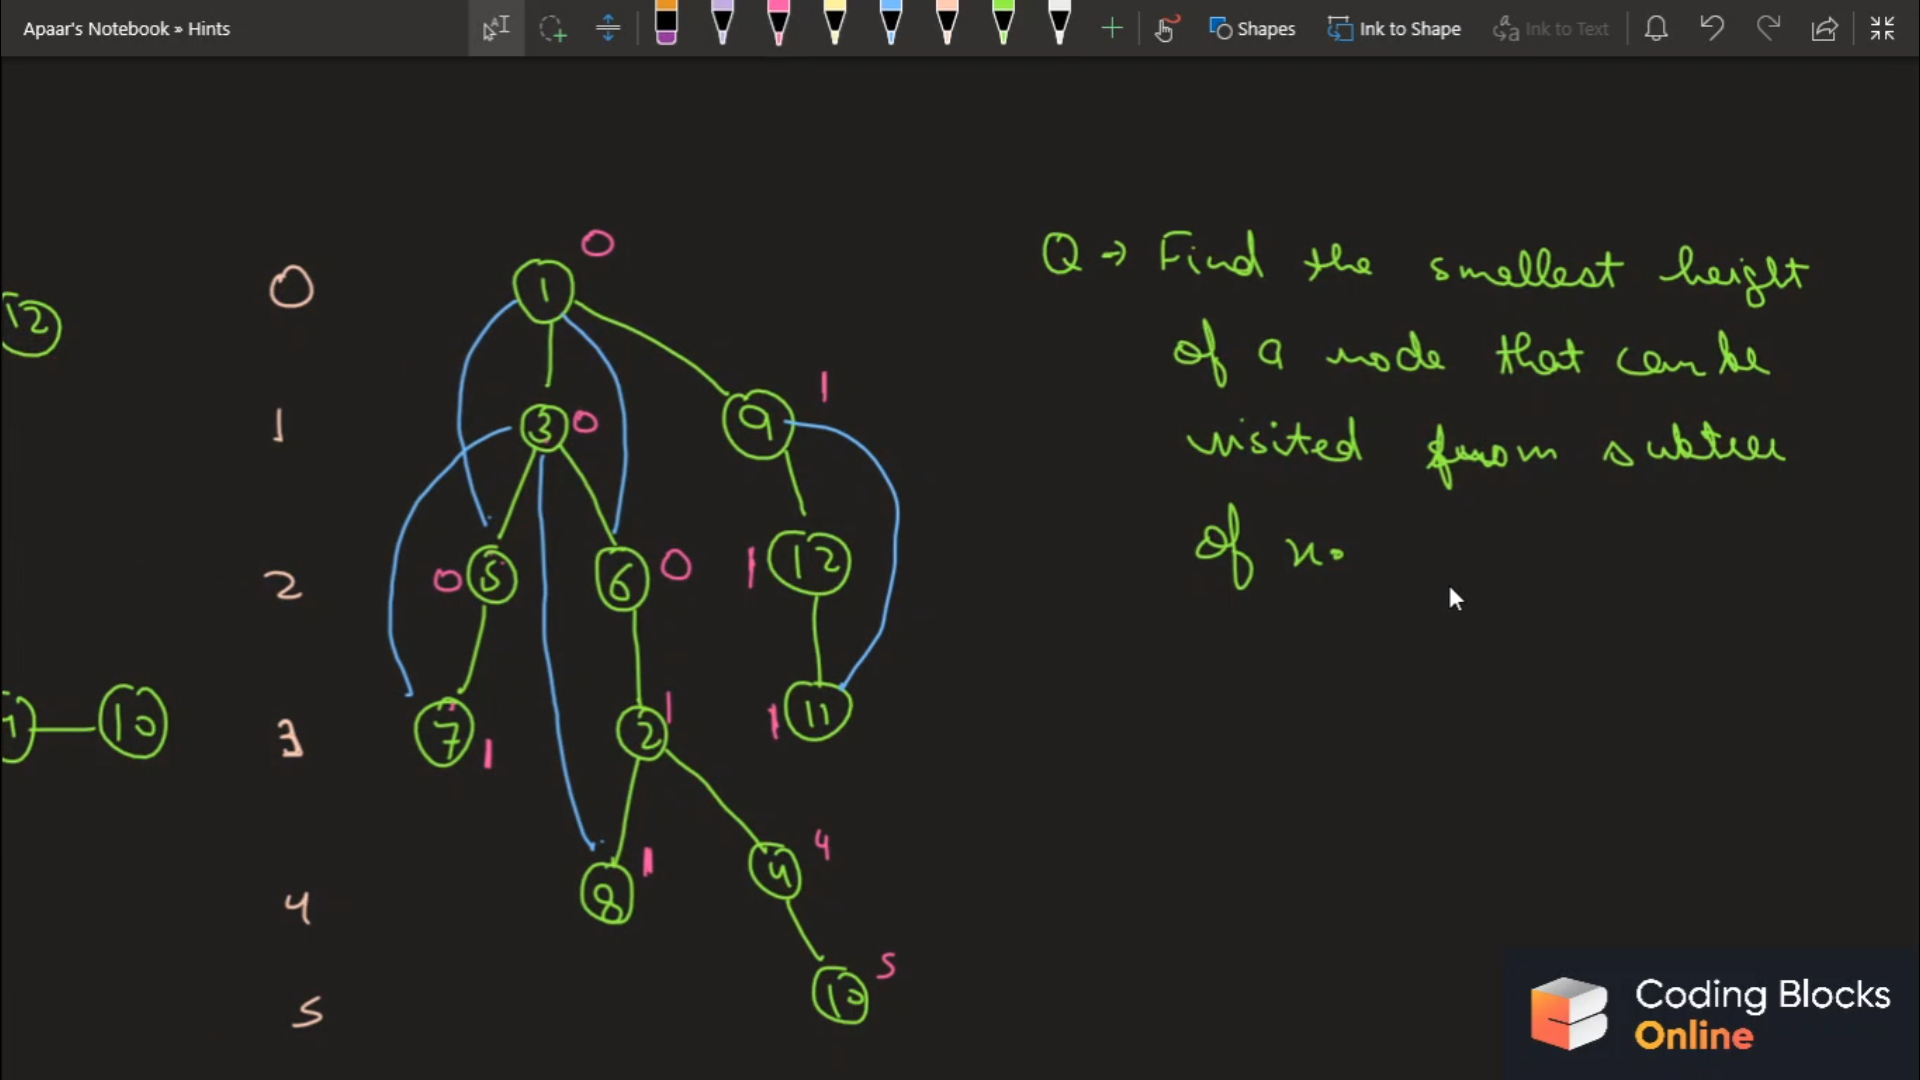 Apaar's Notebook » Hints
Shapes
Ink to Shape
Ink to Text
0
1
2
3
4
5
12
10
1 0
3 0
9 1
0 5
6 0
1 12
7 1
2 1
1 11
8 1
4 4
10 5
Q → Find the smallest height
of a node that can be
visited from subtree
of x.
Coding Blocks
Online